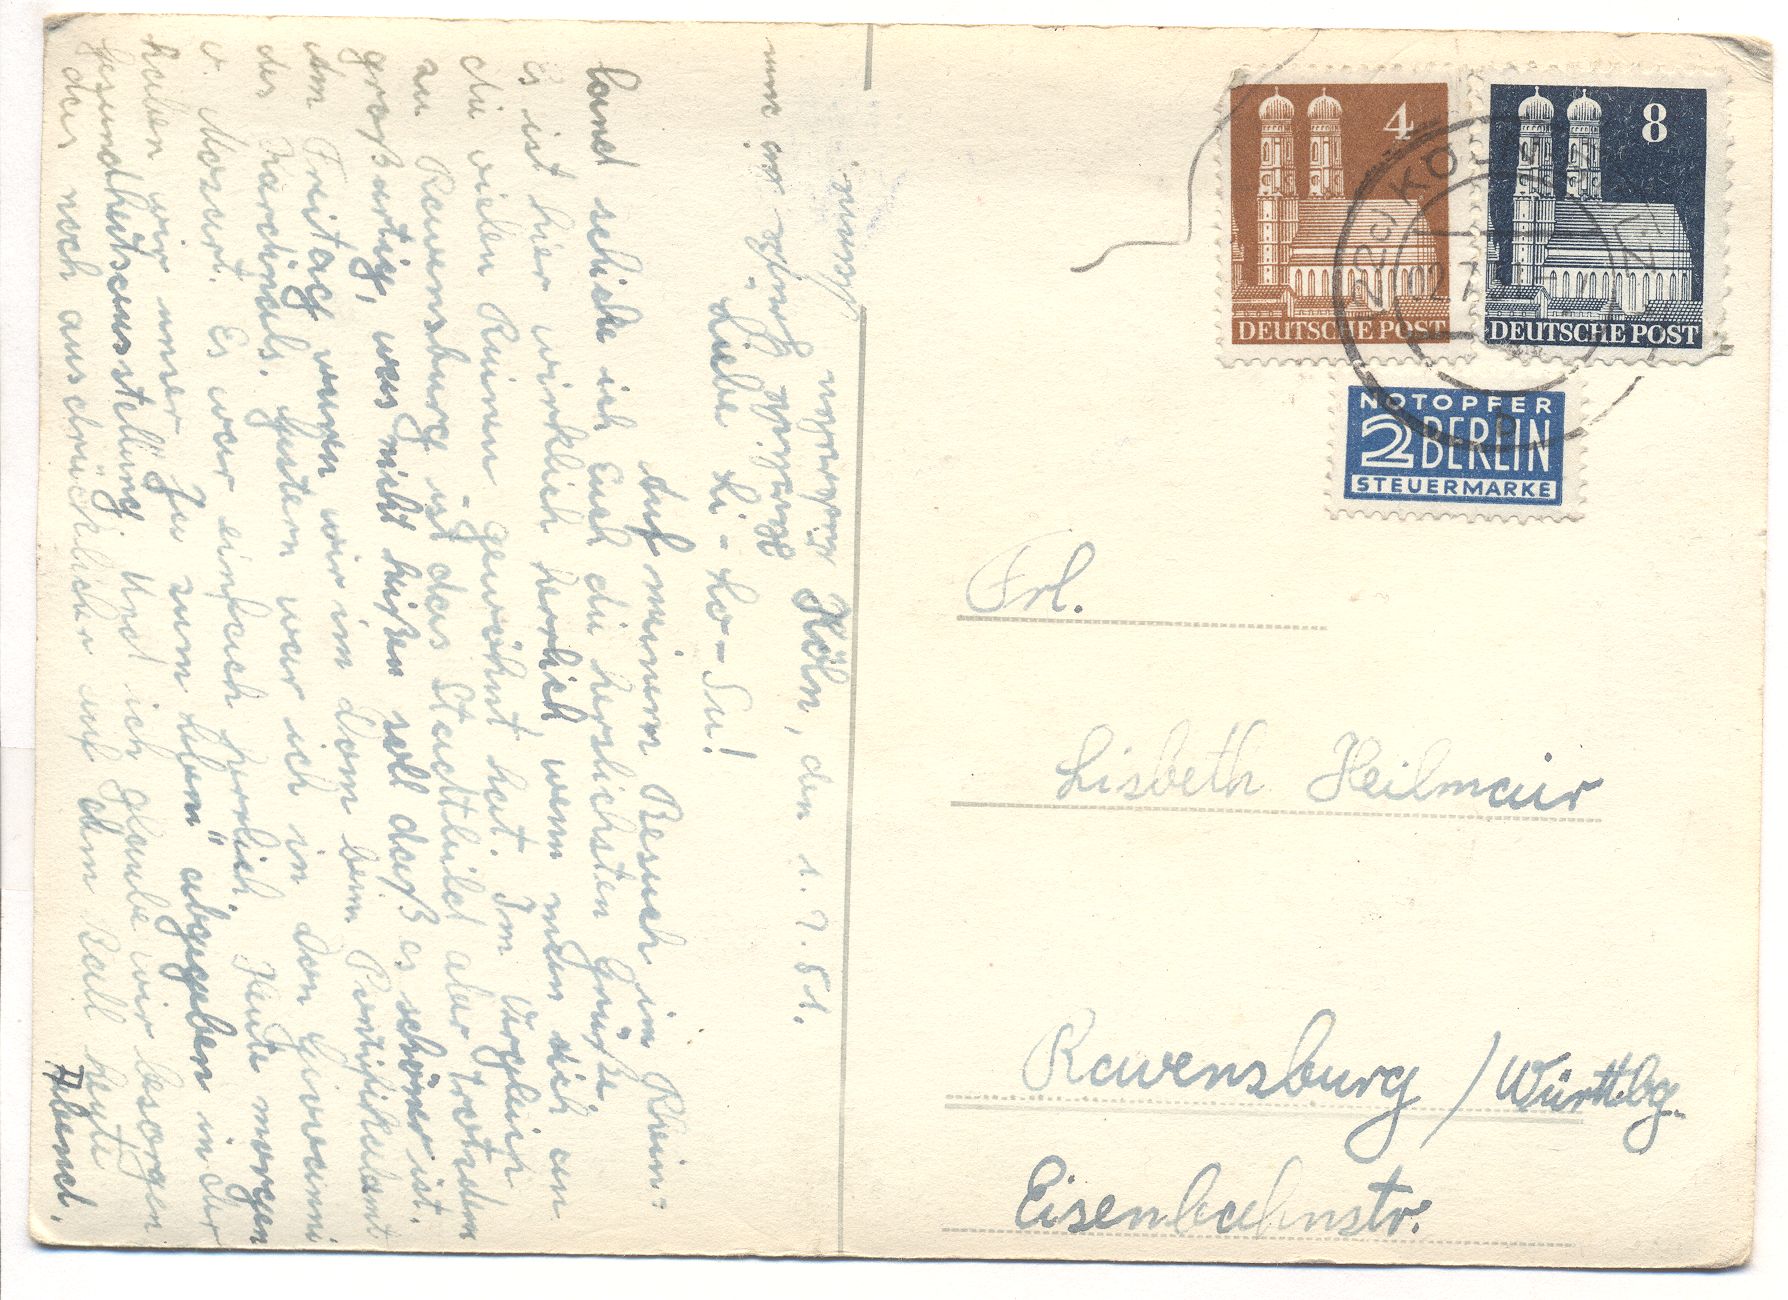 Köln, den 1.7.51.
Liebe Li-Lo-Su!
Auf meinem Besuch im Rhein-
land schicke ich Euch die herzlichsten Grüße.
Es ist hier wirklich herrlich wenn man sich an
die vielen Ruinen gewöhnt hat. Im Vergleich
zu Ravensburg ist das Stadtbild aber trotzdem
großartig, was nicht heißen soll daß es schöner ist.
Am Freitag waren wir im Dom beim Pontifikalamt
des Kardinals. Gestern war ich in Don Giovanni
v. Mozart. Es war einfach herrlich. Heute morgen
haben wir unser "Ja zum Leben" abgegeben in der
Gesundheitsausstellung. Und ich glaube wir besorgen
das noch ausdrücklicher auf dem Ball heute
Abend.
Nun so
herzliche Grüße
Hanna.
4
DEUTSCHE POST
8
DEUTSCHE POST
(22c) KÖLN
NOTOPFER
2 BERLIN
STEUERMARKE
Frl.
Lisbeth Heilmair
Ravensburg / Württbg.
Eisenbahnstr.